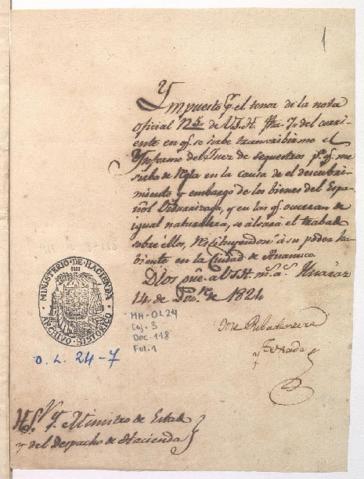 1
Ympuesto q.e el tenor de la nota
oficial N.o 5 de V.S.H. fha 7 del corri
ente en q.e se sirve transcribirme el
Ynforme del Juez de Sequestros p.a q.e me
en la causa de el descubri
miento y embargo de los bienes del Espa
ñol y en los q.e ocurran de
igual naturaleza, se alsará el trabado
sobre ellos, restituyendose á su poder ha
viente en la Ciudad de Huanuco.
Dios gue. a V.S.H. m.s a.s Huaraz
14 de Dbre. de 1824
MINISTERIO DE HACIENDA
ARCHIVO HISTORICO
O. L. 24-7
MH-OL24
Caj. 5
Doc. 118
Fol. 1
H. S.or Ministro de Estado
y del Despacho de Hacienda